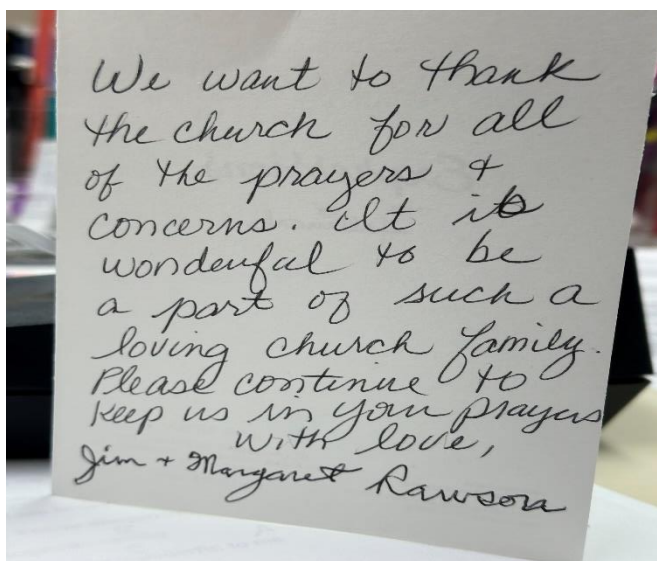 We want to thank
the church for all
of the prayers +
concerns. It is
wonderful to be
a part of such a
loving church family.
Please continue to
keep us in your prayers
with love,
Jim + Margaret Rawson